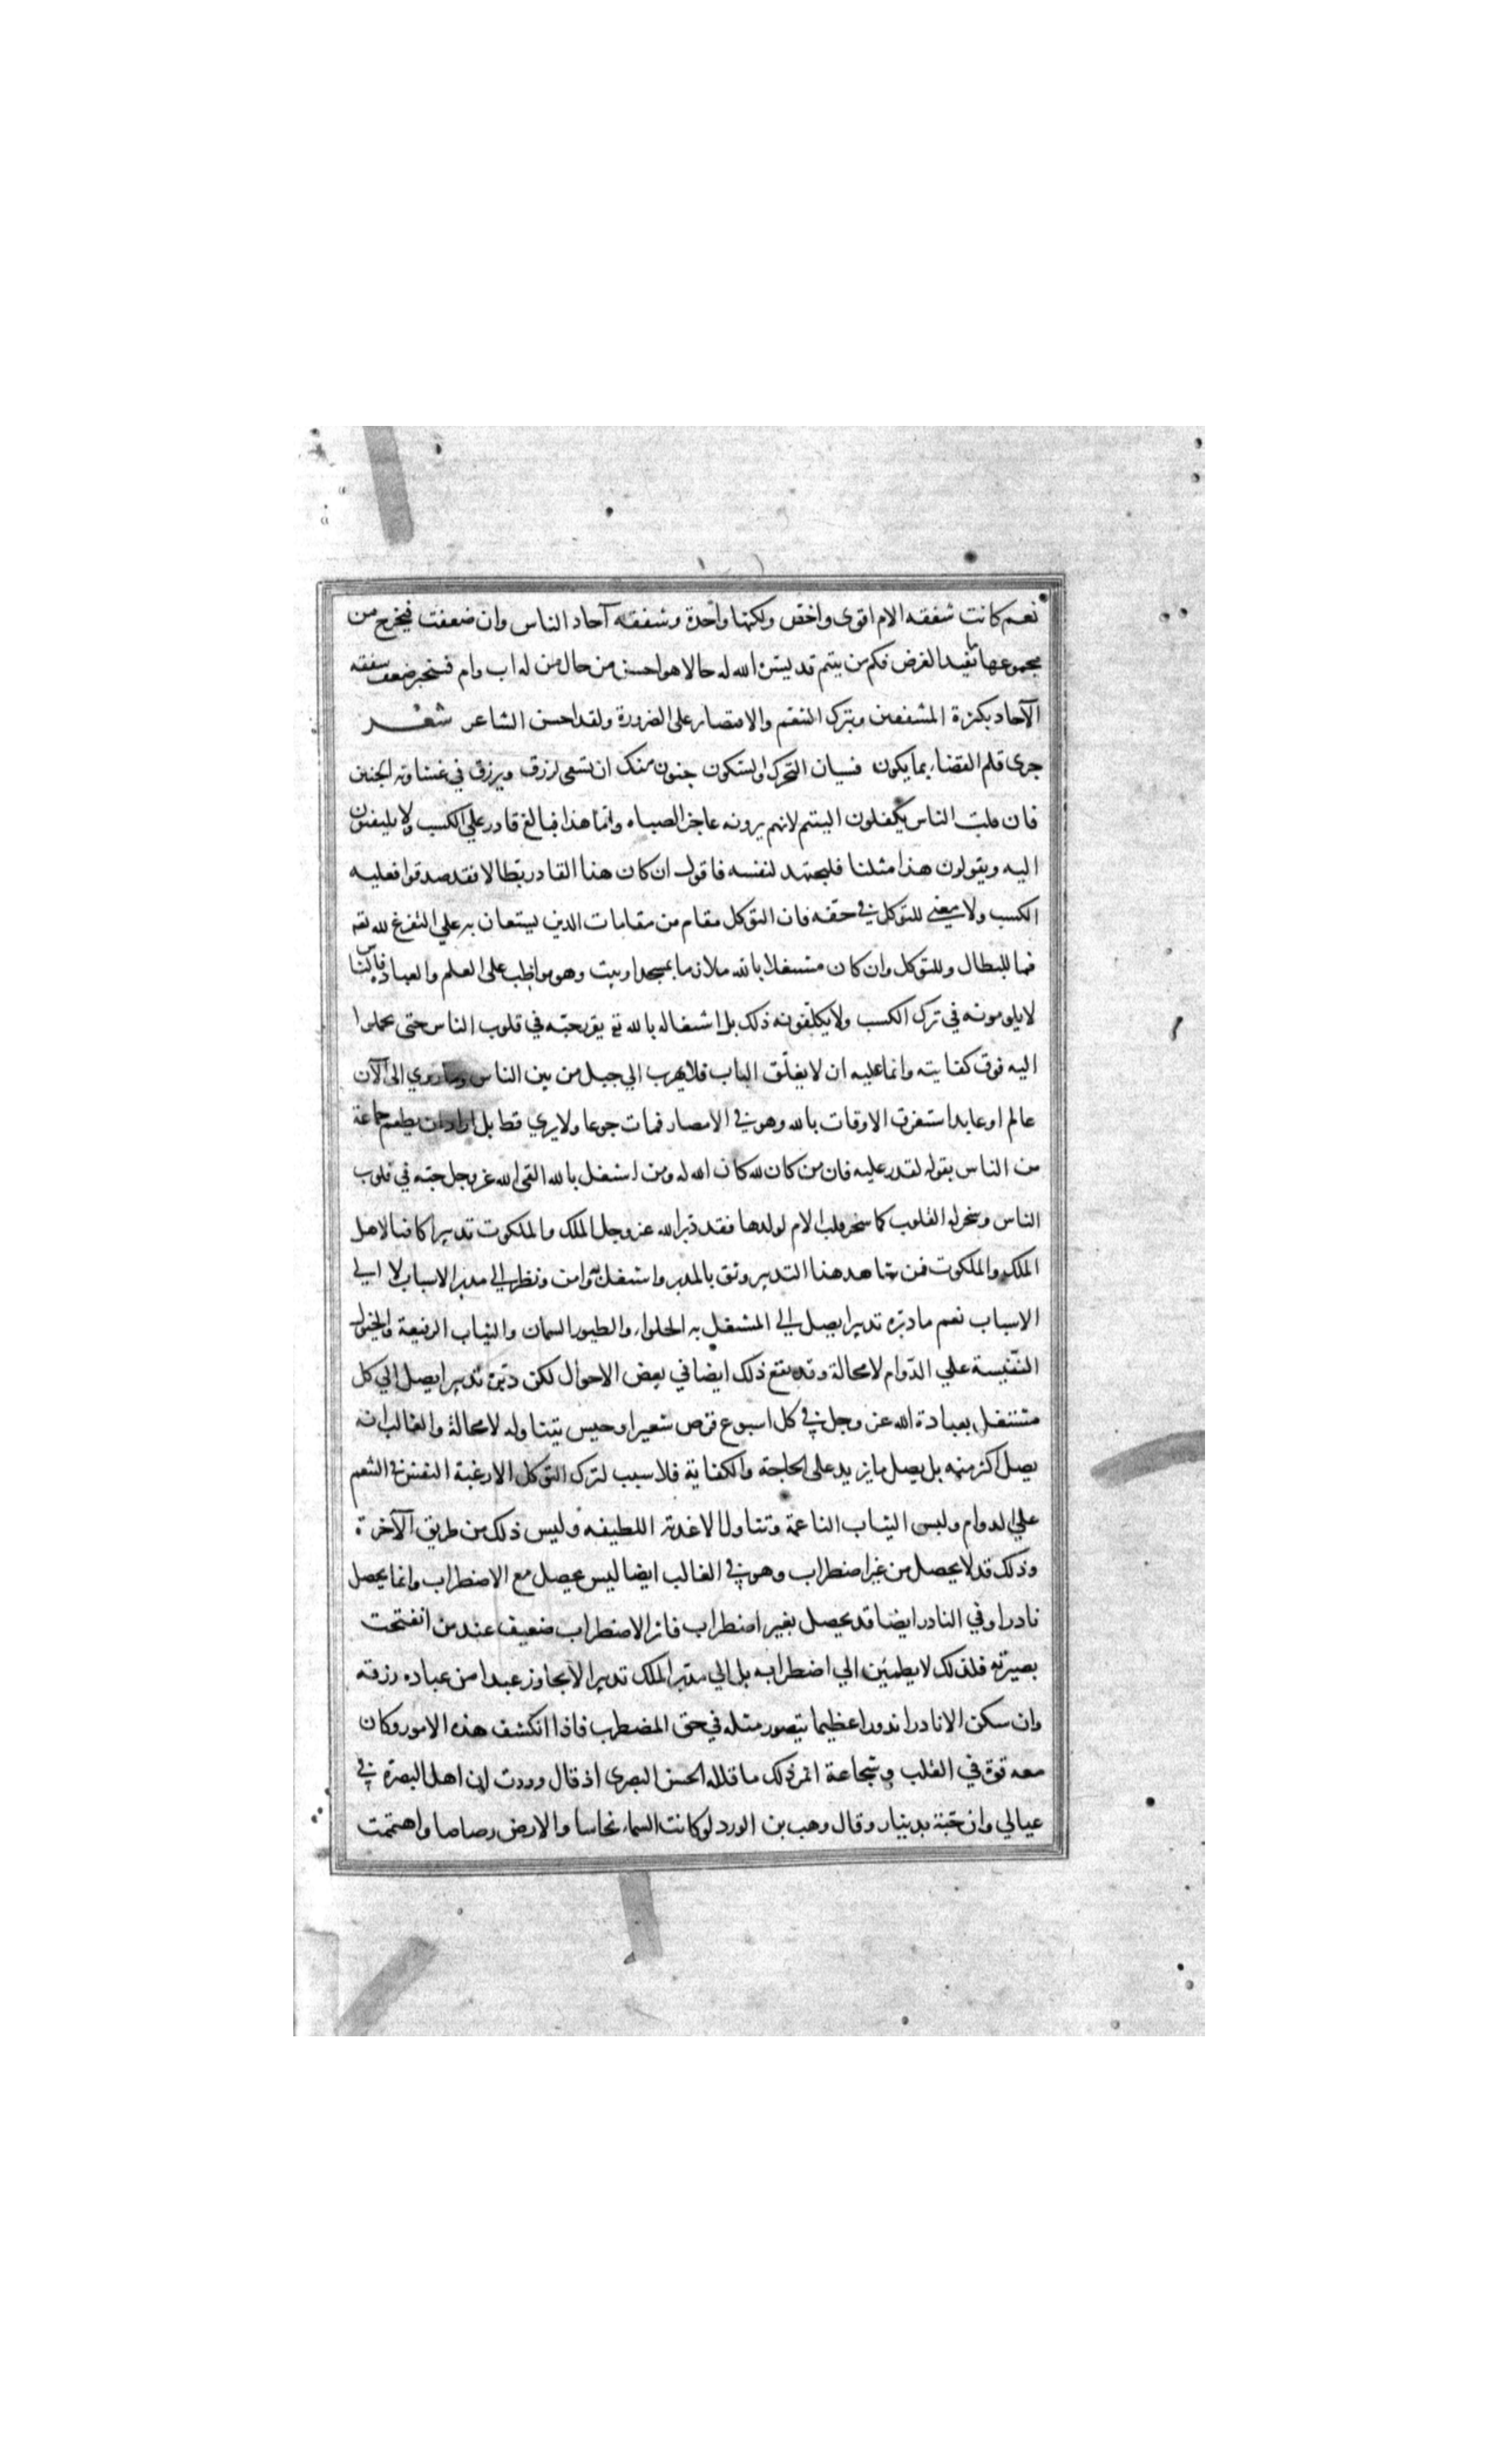 نعم كانت شفقه الام اقوى واخص ولكنها واحدة وشفقه آحاد الناس وان ضعفت فيخرج من
مجموعها ما يفيد الغرض فكم من يتيم قد يسر الله له حالا هو احسن من حال من له اب وام فينجبر ضعف شفقه
الآحاد بكثرة المشفقين وبترك التنعم والاقتصار على الضرورة ولقد احسن الشاعر شعر
جرى قلم القضاء بما يكون فسيان التحرك والسكون جنون منك ان تسعى لرزق ويرزق في غشاوته الجنين
فان قلت الناس يكفلون اليتيم لانهم يرونه عاجزا لصباه وانما هذا فبالغ قادر علي الكسب ولا يلتفتون
اليه ويقولون هذا مثلنا فليجتهد لنفسه فاقول ان كان هذا القادر بطالا فقد صدقوا فعليه
الكسب ولا معني للتوكل في حقه فان التوكل مقام من مقامات الدين ليستعان به علي التفرغ لله تعه
فما للبطال وللتوكل وان كان مشتغلا بالله ملازما بمسجد او بيت وهو مواظب على العلم والعباد فالناس
لا يلومونه في ترك الكسب ولا يكلفونه ذلك بل اشتغاله بالله تع يقرر حبه في قلوب الناس حتى يحملوا
اليه فوق كفايته وانما عليه ان لا يغلق الباب فلا يهرب الي جبل من بين الناس وما رؤي الى الآن
عالم او عابد استغرق الاوقات بالله وهو في الامصار فمات جوعا ولا يري قط بل لو اراد ان يطعم جماعة
من الناس بقوله لقدر عليه فان من كان لله كان الله له ومن اشتغل بالله القى الله عز وجل حبه في قلوب
الناس وسخر له القلوب كما سخر قلب الام لولدها فقد دبر الله عز وجل الملك والملكوت تدبيرا كافيا لاهل
الملك والملكوت فمن شاهد هذا التدبير وثق بالمدبر واشتغل به وامن ونظر الي مدبر الاسباب لا الي
الاسباب نعم ما دبره تدبيرا يصل الي المشتغل به الحلواء والطيور السمان والثياب الرفيعة والخيول
النفيسة علي الدوام لا محالة وقد يقع ذلك ايضا في بعض الاحوال لكن دبره تدبيرا يصل الي كل
مشتغل بعبادة الله عز وجل في كل اسبوع قرص شعير او حيس يتناوله لا محالة والغالب انه
يصل اكثر منه بل يصل ما يزيد على الحاجة والكفاية فلا سبب لترك التوكل الا رغبة النفس في التنعم
علي الدوام ولبس الثياب الناعمة وتناول الاغذية اللطيفه وليس ذلك من طريق الآخرة
وذلك قد لا يحصل من غير اضطراب وهو في الغالب ايضا ليس يحصل مع الاضطراب وانما يحصل
نادرا وفي النادر ايضا قد يحصل بغير اضطراب فاثر الاضطراب ضعيف عند من انفتحت
بصيرته فلذلك لا يطمئن الي اضطرابه بل الي مدبر الملك تدبيرا لا يجاوز عبدا من عباده رزقه
وان سكن الا نادرا ندورا عظيما يتصور مثله في حق المضطرب فاذا انكشف هذه الامور وكان
معه قوة في القلب وشجاعة اثمر ذلك ما قاله الحسن البصرى اذ قال وددت ان اهل البصرة في
عيالي وان حبة بدينار وقال وهب بن الورد لو كانت السماء نحاسا والارض رصاصا واهتممت